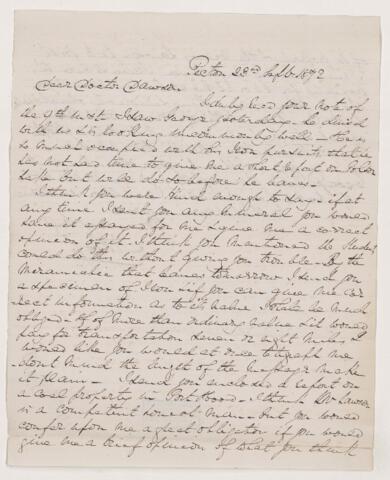 Picton 23rd Sept 1872
Dear Doctor Dawson
I duly recd your note of
the 9th inst I saw George yesterday he dined
with us & is looking uncommonly well - He is
so much occupied with his Iron pursuits that he
has not had time to give me a short report on
but will do so before he leaves -
I think you were kind enough to say if at
any time I sent you any mineral you would
have it assayed for me & give me a correct
opinion of it. I think you mentioned the students
could do this without giving you trouble - By the
Miramichi that leaves tomorrow I send you
a specimen of Iron & if you can give me cor
rect information as to its value I shall be much
obliged - If of more than ordinary value & it would
pay for transportation seven or eight miles I
would like you would at once telegraph me
dont mind the length of the message make
it plain - I send you enclosed a report on
a coal property in Port Hood - I think Mr
is a competent honest man - but you would
confer upon me a great obligation if you would
give me a brief opinion of what you think